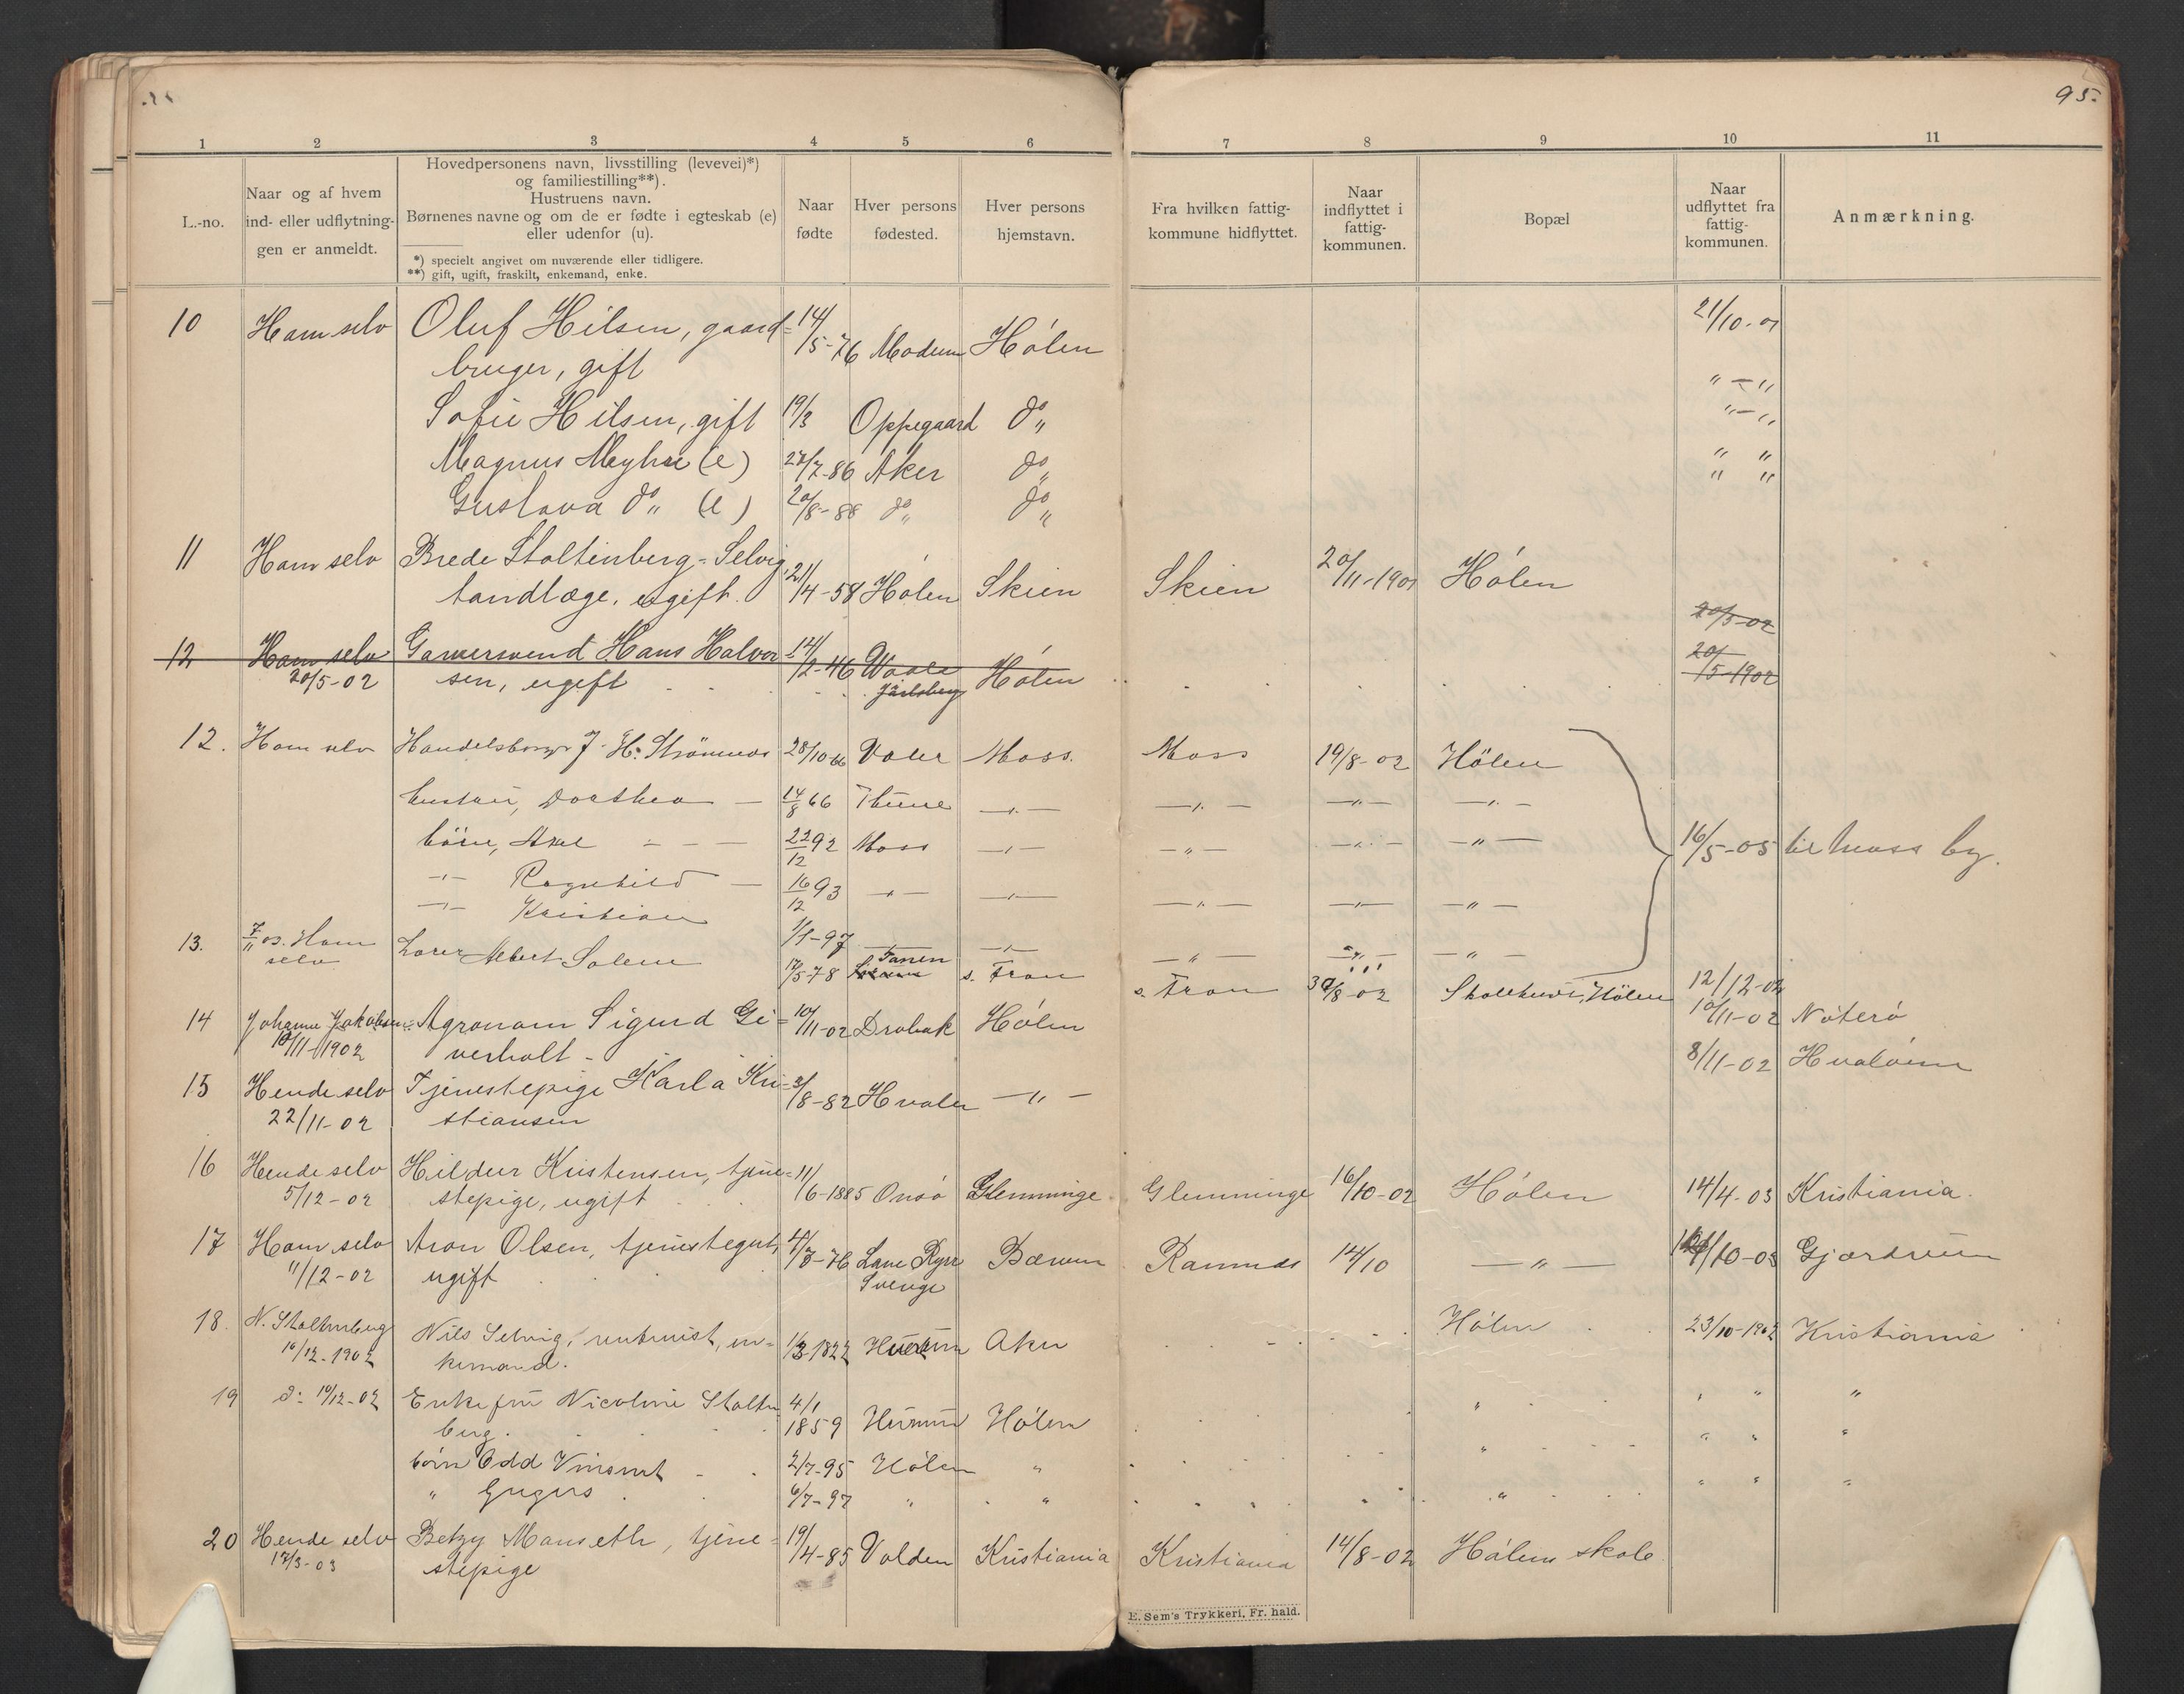 95.
1 2 3 4 5 6 7 8 9 10 11
L.-no.
Naar og af hvem
ind- eller udflytnin-
gen er anmeldt.
Hovedpersonens navn, livsstilling (levevei)*)
og familiestilling**).
Hustruens navn.
Børnenes navne og om de er fødte i egteskab (e)
eller udenfor (u).
*) specielt angivet om nuværende eller tidligere.
**) gift, ugift, fraskilt, enkemand, enke.
Naar
fødte
Hver persons
fødested.
Hver persons
hjemstavn.
Fra hvilken fattig-
kommune hidflyttet.
Naar
indflyttet i
fattig-
kommunen.
Bopæl
Naar
udflyttet fra
fattig-
kommunen.
Anmærkning.
10 Ham selv Oluf Hilsen, gaard- 14/5-76 Modum Hölen 21/10-01
bruger, gift " — "
Sofie Hilsen, gift 19/3 Oppegaard do " " — "
Magnus Meyhre (e) 27/7-86 Aker do " " "
Gustava do " (e) 20/8-88 do " do " " "
11 Ham selv Brede Stoltenberg-Selvig, 21/4-58 Hölen Skien Skien 20/11-1901 Hölen
tandlæge, ugift.
20/5-02
12 Ham selv Garversvend Hans Halvor- 14/2-46 Vaale Hölen 20/5-1902
20/5-02 sen, ugift Jarlsberg
12. Ham selv Handelsborger J. H. Strömnes 28/10-66 Valer Moss. Moss 19/8-02 Hölen
hustru, Dorthea — 14/8 66 Thune — " — — " — — " — — " —
börn, Axel — 22/12 92 Moss — " — — " — — " — — " — 16/5-05 til Moss by.
— " — Ragnhild — 16/12 93 — " — — " — — " — — " — — " —
— " — Kristian 1/1-97 — — " — — " — — " — — " —
13. 7/11 02. Ham Lærer Albert Solem 17/5-78 Fanen s. Fron s. Fron 30/8-02 Skolehuset, Hölen 12/12-02
selv
14 Johanne Jakobsen Agronom Sigurd Gi- 10/11-02 Drøbak Hölen 10/11-02 Nöterö
10/11-1902 verholt -
15 Hende selv Tjenestepige Karla Kri- 3/8-82 Hvaler — " — 8/11-02 Hvalöerne
22/11-02 stiansen
16 Hende selv Hildur Kristensen, tjene- 11/6-1885 Onsö Glemminge Glemminge 16/10-02 Hölen 14/4-03 Kristiania.
5/12-02 stepige, ugift
17 Ham selv Aron Olsen, tjenestegut, 4/7-76 Lane Ryrr Bærum Ramnes 14/10 — " — /10-03 Gjærdrum
11/12-02 ugift Sverige
18. N. Stoltenberg Nils Selvig, rentenist, en- 1/3-1822 Hurum Aker Hölen 23/10-1902 Kristiania
10/12-1902 kemand.
19 do 10/12-02 Enkefru Nicoline Stolten 4/1 1859 Hurum Hölen " " " "
berg. " " "
börn Odd Vinsent 2/7-95 Hölen " " " " "
" Gregers 6/7-97 " " "
20 Hende selv Betzy Manseth, tjene- 19/4-85 Volden Kristiania Kristiania 14/8-02 Hölens skole
17/3-03 stepige
E. Sem's Trykkeri, Fr. hald.